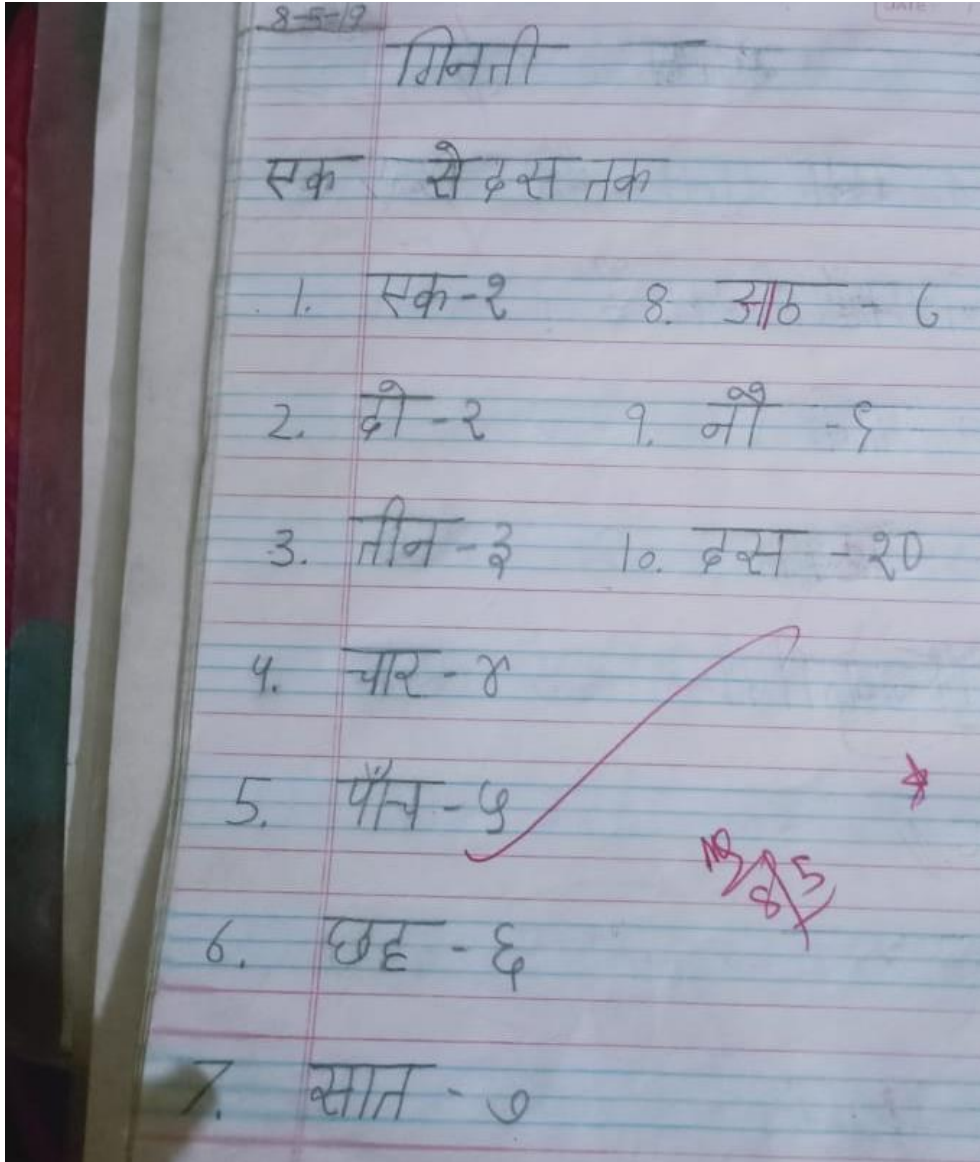 8-5-19
DATE
गिनती
एक से दस तक
1. एक - १
2. दो - २
3. तीन - ३
4. चार - ४
5. पाँच - ५
6. छह - ६
7. सात - ७
8. आठ - ८
9. नौ - ९
10. दस - १०
8/5